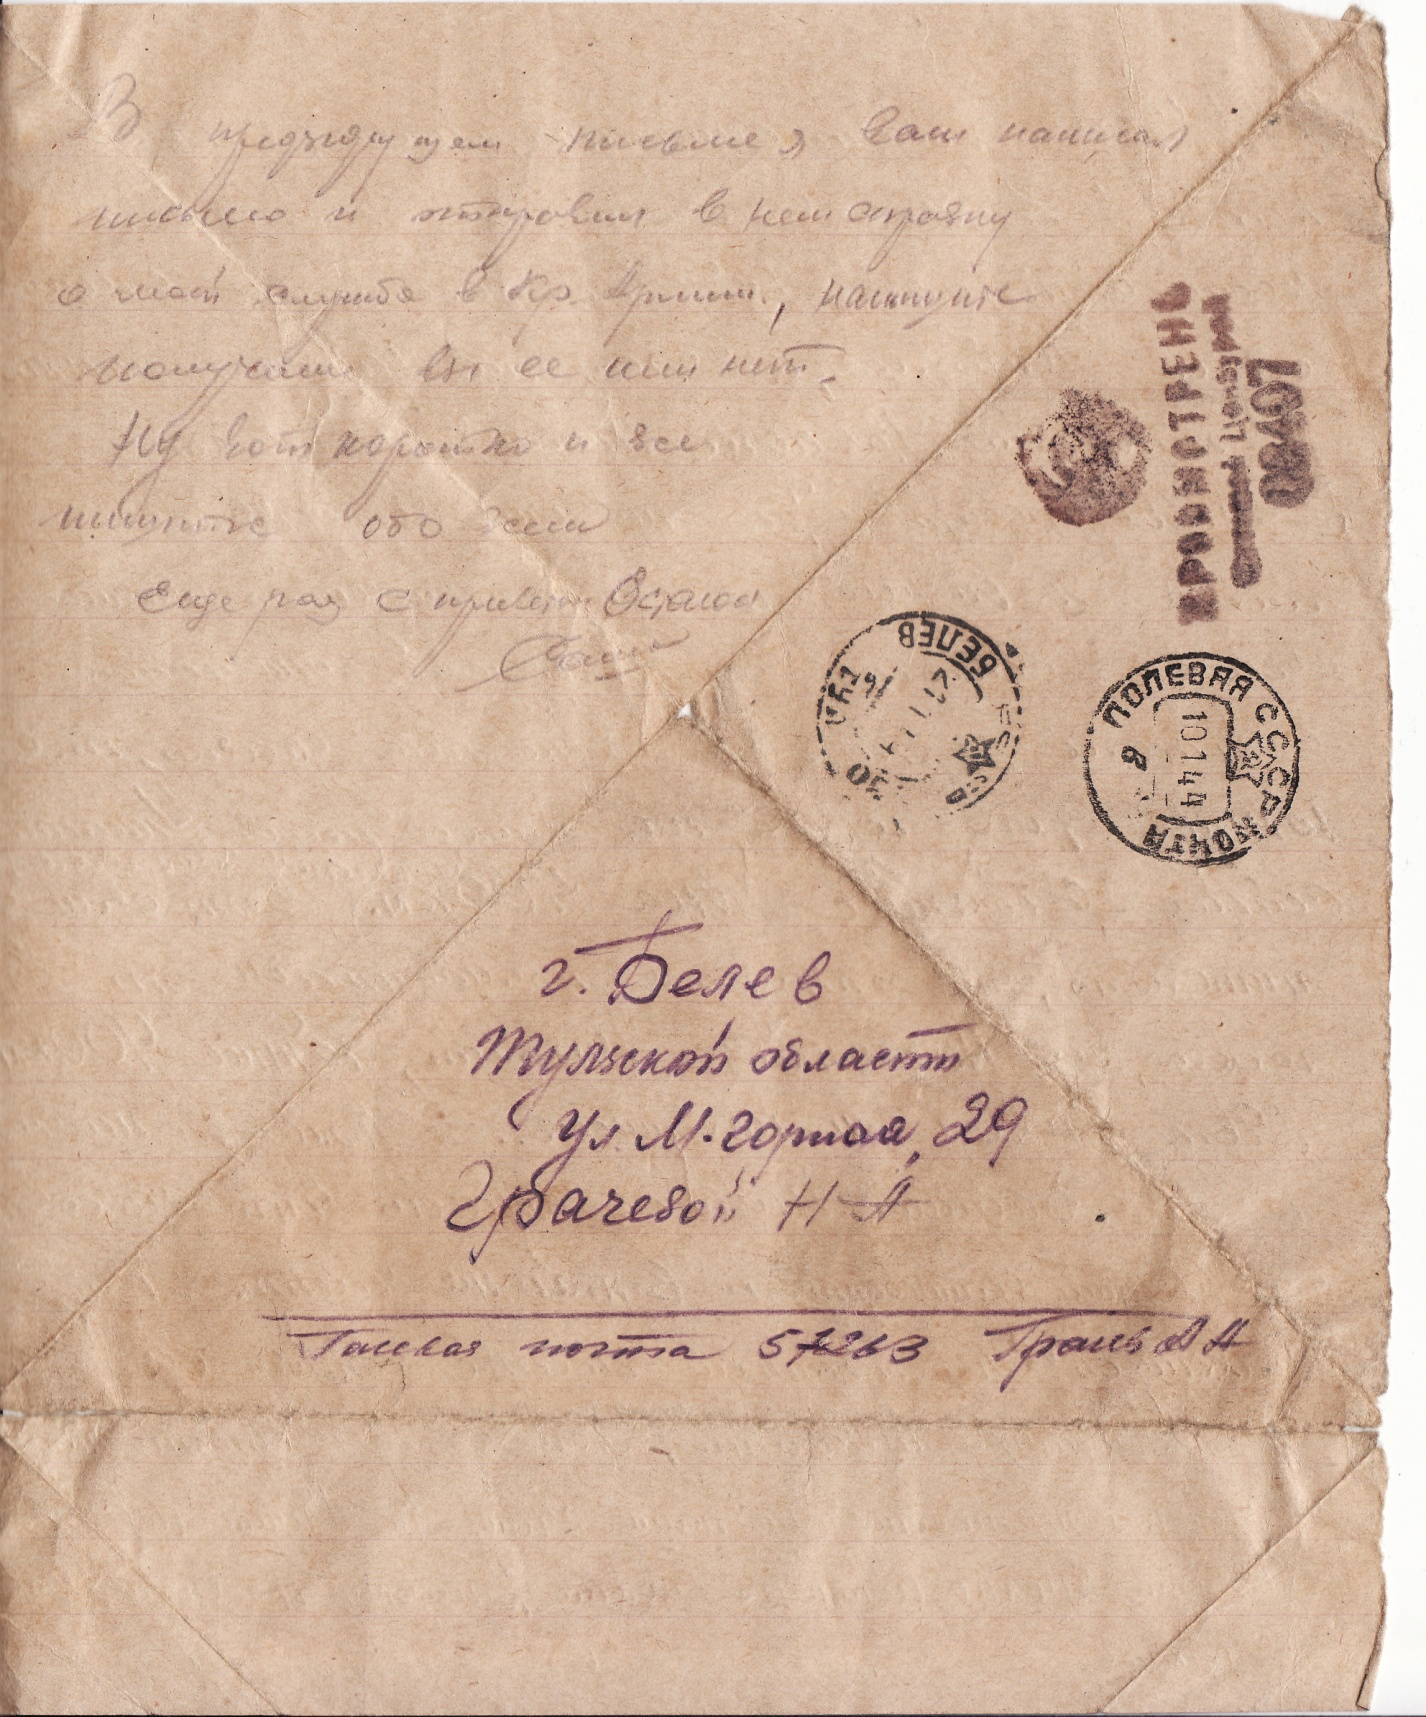 В предыдущем письме я Вам написал
письмо и отправил в нем справку
о моей службе в Кр. Армии, напишите
получили вы ее или нет.
Ну вот коротко и все
пишите обо всем
Еще раз с приветом Остаюсь
ПРОСМОТРЕНО
Военной Цензурой
08407
БЕЛЕВ
ПОЛЕВАЯ ПОЧТА
СССР
10 1 44
г. Белев
Тульской области
ул. М. горная, 29
Грачевой Н А
Полевая почта 57263 Грачев А А